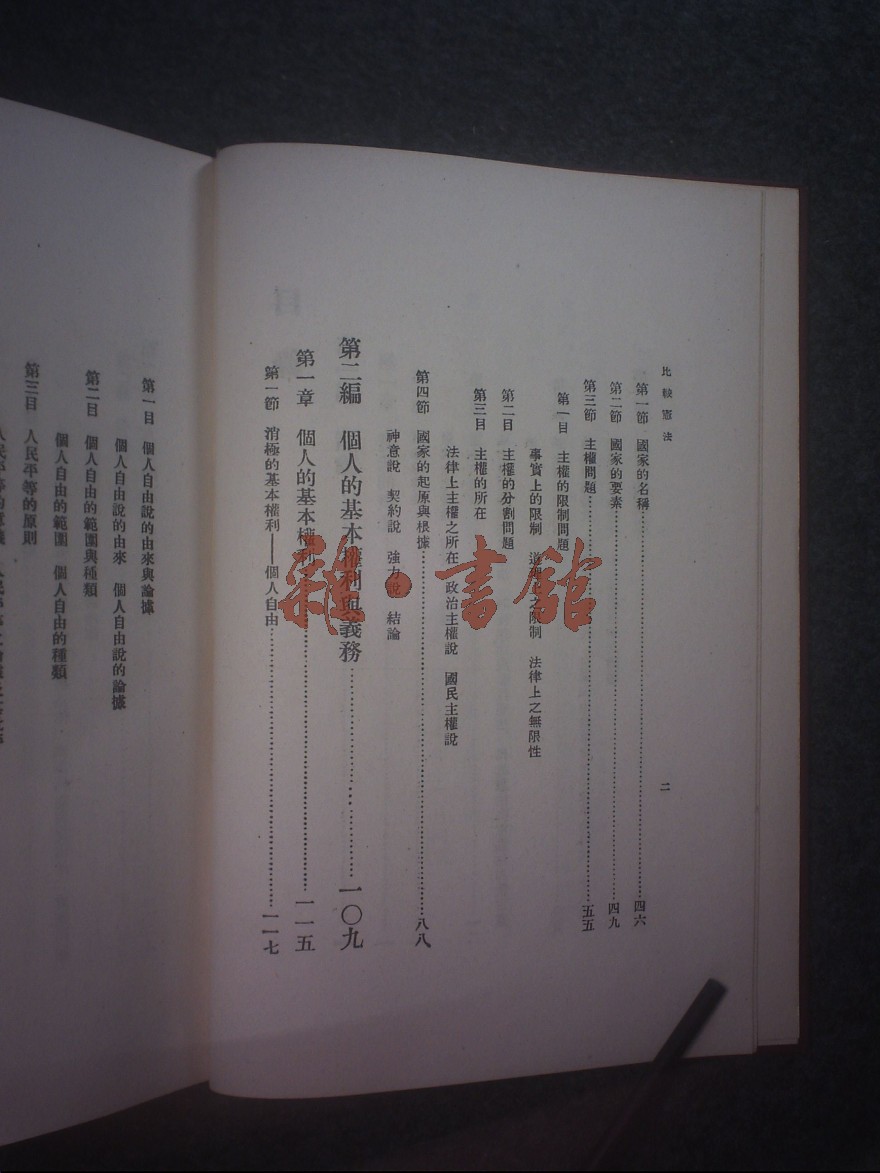 比較憲法
二
第一節　國家的名稱……四六
第二節　國家的要素……四九
第三節　主權問題……五五
第一目　主權的限制問題
事實上的限制　道理上之限制　法律上之無限性
第二目　主權的分割問題
第三目　主權的所在
法律上主權之所在　政治主權說　國民主權說
第四節　國家的起原與根據……八八
神意說　契約說　強力說　結論
第二編　個人的基本權利與義務……一〇九
第一章　個人的基本權利……一一五
第一節　消極的基本權利——個人自由……一一七
第一目　個人自由說的由來與論據
個人自由說的由來　個人自由說的論據
第二目　個人自由的範圍與種類
個人自由的範圍　個人自由的種類
第三目　人民平等的原則
雜·書館